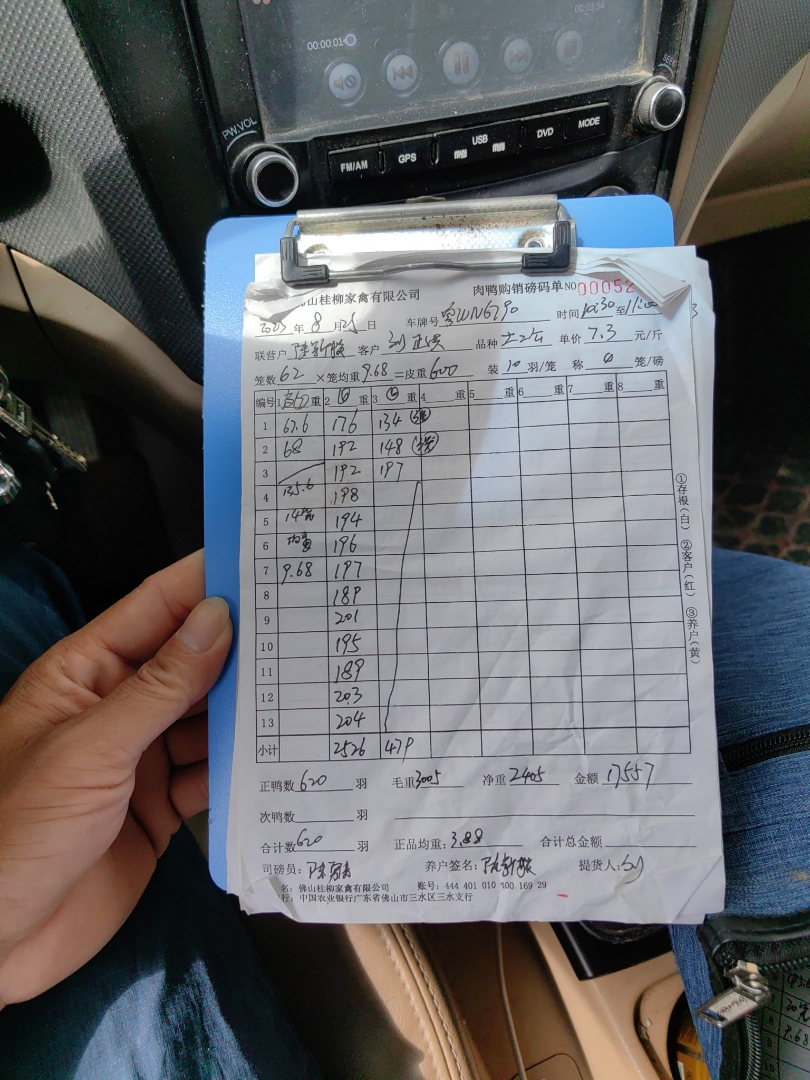 00:00:01
00:03:34
PW.VOL
SEL
FM/AM GPS USB DVD MODE
佛山桂柳家禽有限公司 肉鸭购销磅码单 NO 00052
2023年8月25日 车牌号 粤WN6790 时间10:30至11:00
联营户 客户 品种 单价7.3元/斤
笼数62×笼均重9.68=皮重600 装10羽/笼 称4笼/磅
编号 1 重 2 重 3 重 4 重 5 重 6 重 7 重 8 重
1 67.6 176 134
2 68 192 148
3 192 197
4 135.6 198
5 14笼 194
6 均重 196
7 9.68 197
8 189
9 201
10 195
11 189
12 203
13 204
小计 2526 479
①存根(白) ②客户(红) ③养户(黄)
正鸭数620羽 毛重3005 净重2405 金额17557
次鸭数 羽
合计数620羽 正品均重:3.88 合计总金额
司磅员: 养户签名: 提货人:
名:佛山桂柳家禽有限公司 账号:444 401 010 400 169 29
行:中国农业银行广东省佛山市三水区三水支行
9.68